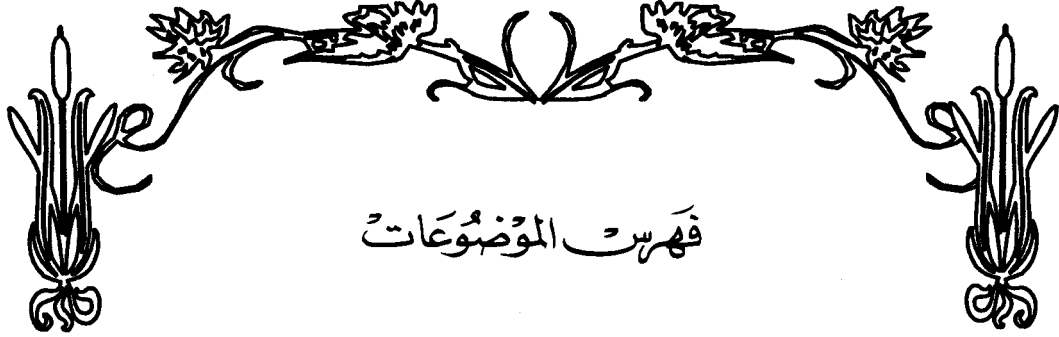 فَهَرسْ المَوْضُوعَاتْ